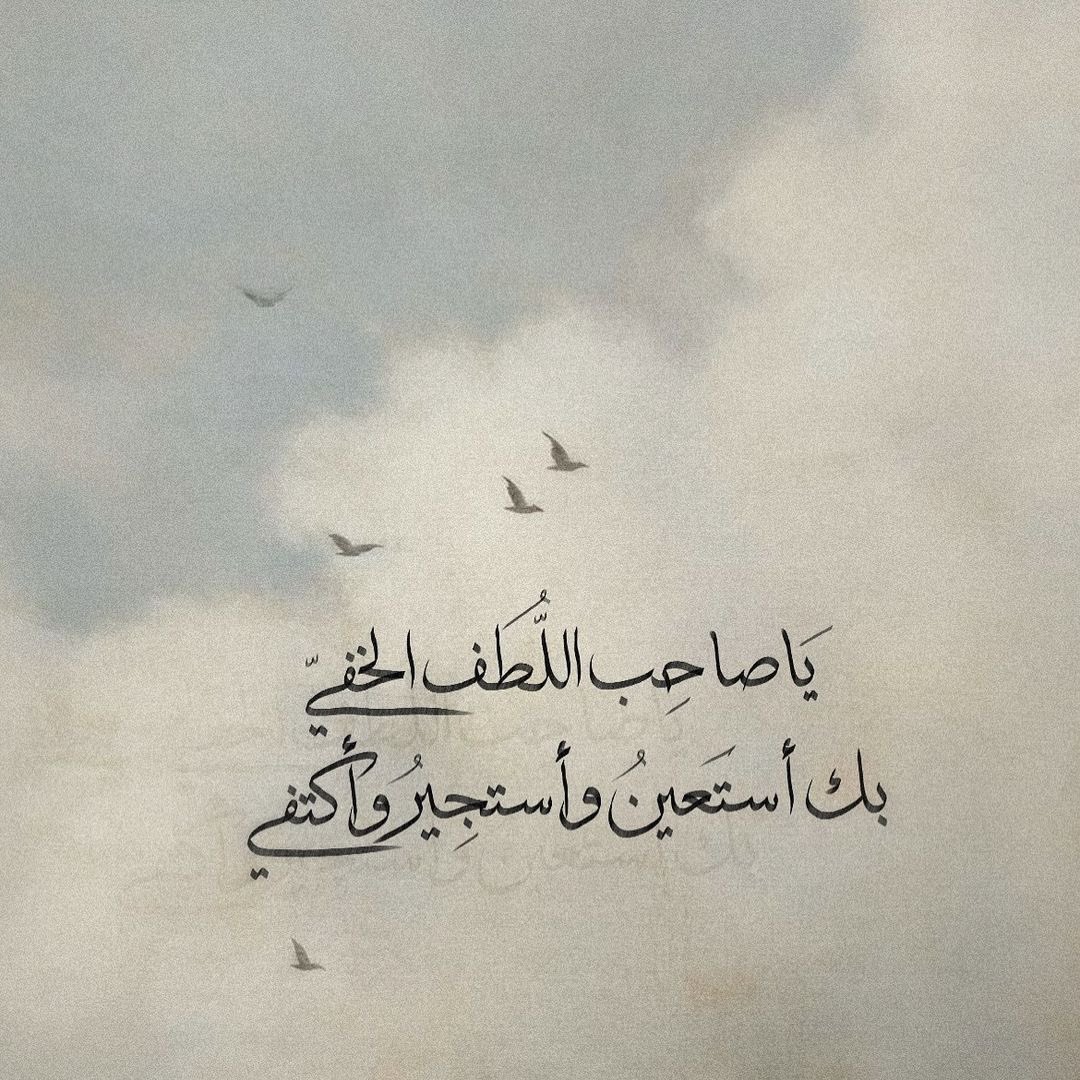 يَا صاحِب اللُّطَف الخفيّ
بك أستَعينُ وأستجِيرُ وَأكتفي